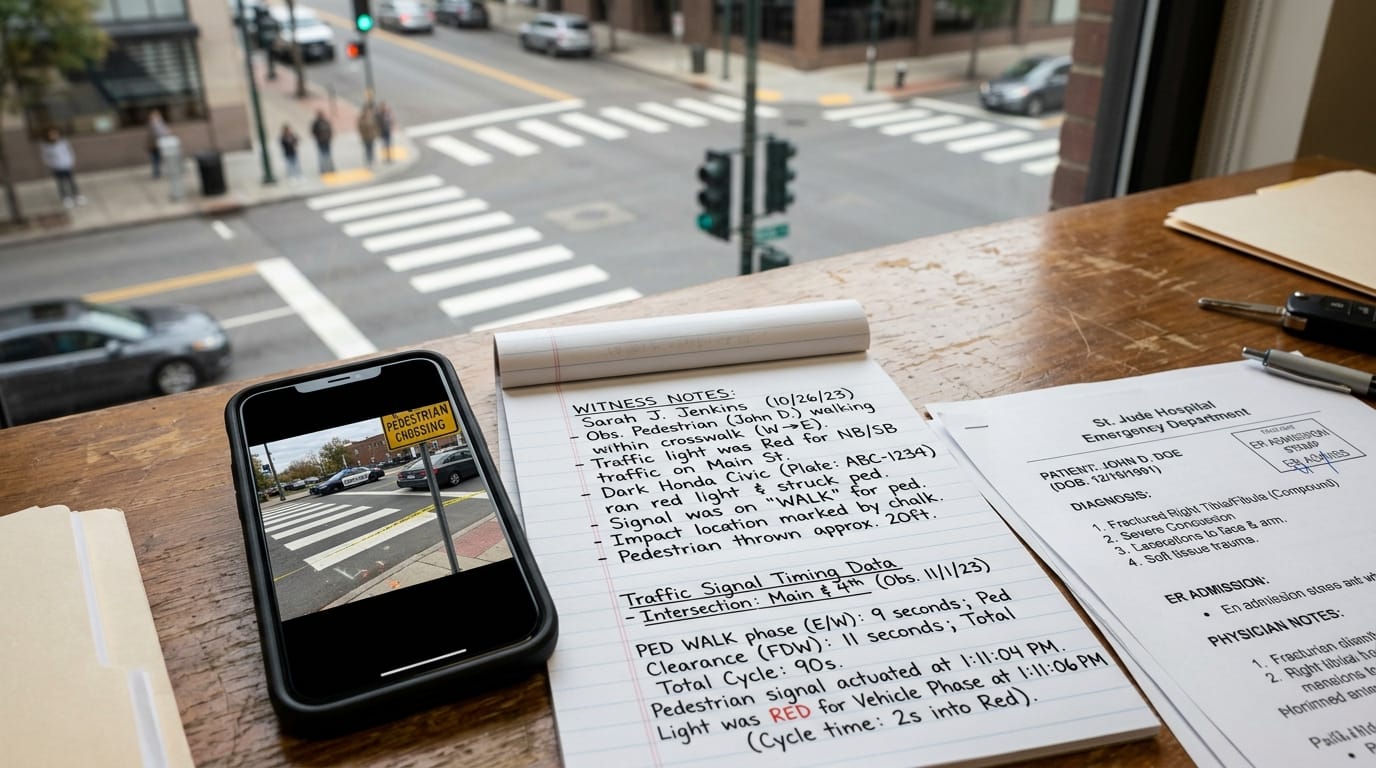 PEDESTRIAN
CROSSING
WITNESS NOTES:
Sarah J. Jenkins (10/26/23)
- Obs. Pedestrian (John D.) walking
within crosswalk (W→E).
- Traffic light was Red for NB/SB
traffic on Main St.
- Dark Honda Civic (Plate: ABC-1234)
ran red light & struck ped.
- Signal was on "WALK" for ped.
- Impact location marked by chalk.
- Pedestrian thrown approx. 20ft.
Traffic Signal Timing Data
- Intersection: Main & 4th (Obs. 11/1/23)
PED WALK phase (E/W): 9 seconds; Ped
Clearance (FDW): 11 seconds; Total
Total Cycle: 90s.
Pedestrian signal actuated at 1:11:04 PM.
Light was RED for Vehicle Phase at 1:11:06 PM
(Cycle time: 2s into Red).
St. Jude Hospital
Emergency Department
ER ADMISSION
STAMP
PATIENT: JOHN D. DOE
(DOB. 12/19/1991)
DIAGNOSIS:
1. Fractured Right Tibia/Fibula (Compound)
2. Severe Concussion
3. Lacerations to face & arm.
4. Soft tissue trauma.
ER ADMISSION:
• En admission
PHYSICIAN NOTES:
1.
2. Right